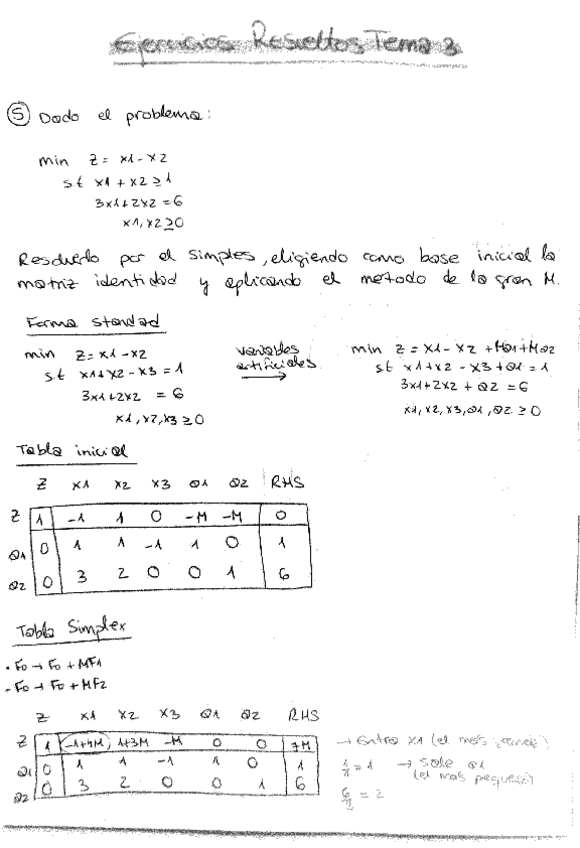 Ejercicios Resueltos Tema 3
5 Dado el problema:
min Z = x1 - x2
s.t x1 + x2 ≥ 1
3x1 + 2x2 = 6
x1, x2 ≥ 0
Resolverlo por el simplex, eligiendo como base inicial la
matriz identidad y aplicando el metodo de la gran M.
Forma standad
min Z = x1 - x2
s.t x1 + x2 - x3 = 1
3x1 + 2x2 = 6
x1, x2, x3 ≥ 0
variables
artificiales
→
min Z = x1 - x2 + Ma1 + Ma2
s.t x1 + x2 - x3 + a1 = 1
3x1 + 2x2 + a2 = 6
x1, x2, x3, a1, a2 ≥ 0
Tabla inicial
Z x1 x2 x3 a1 a2 RHS
Z 1 -1 1 0 -M -M 0
a1 0 1 1 -1 1 0 1
a2 0 3 2 0 0 1 6
Tabla Simplex
• F0 → F0 + MF1
- F0 → F0 + MF2
Z x1 x2 x3 a1 a2 RHS
Z 1 -1+4M 1+3M -M 0 0 7M → Entra x1 (el más grande)
a1 0 1 1 -1 1 0 1 1/1 = 1 → sale a1
(el mas pequeño)
a2 0 3 2 0 0 1 6 6/3 = 2